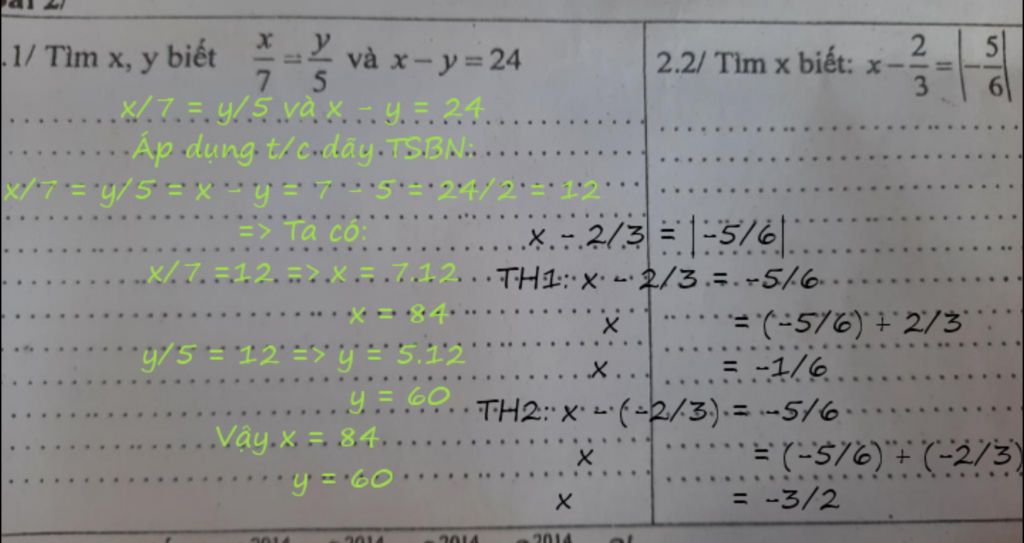 .1/ Tìm x, y biết x/7 = y/5 và x − y = 24
x/7 = y/5 và x - y = 24
Áp dụng t/c dãy TSBN:
x/7 = y/5 = x - y = 7 - 5 = 24/2 = 12
=> Ta có:
x/7 =12 => x = 7.12
x = 84
y/5 = 12 => y = 5.12
y = 60
Vậy x = 84
y = 60
2.2/ Tìm x biết: x − 2/3 = |−5/6|
x - 2/3 = |-5/6|
TH1: x - 2/3 = -5/6
x = (-5/6) + 2/3
x = -1/6
TH2: x - (-2/3) = -5/6
x = (-5/6) + (-2/3)
x = -3/2